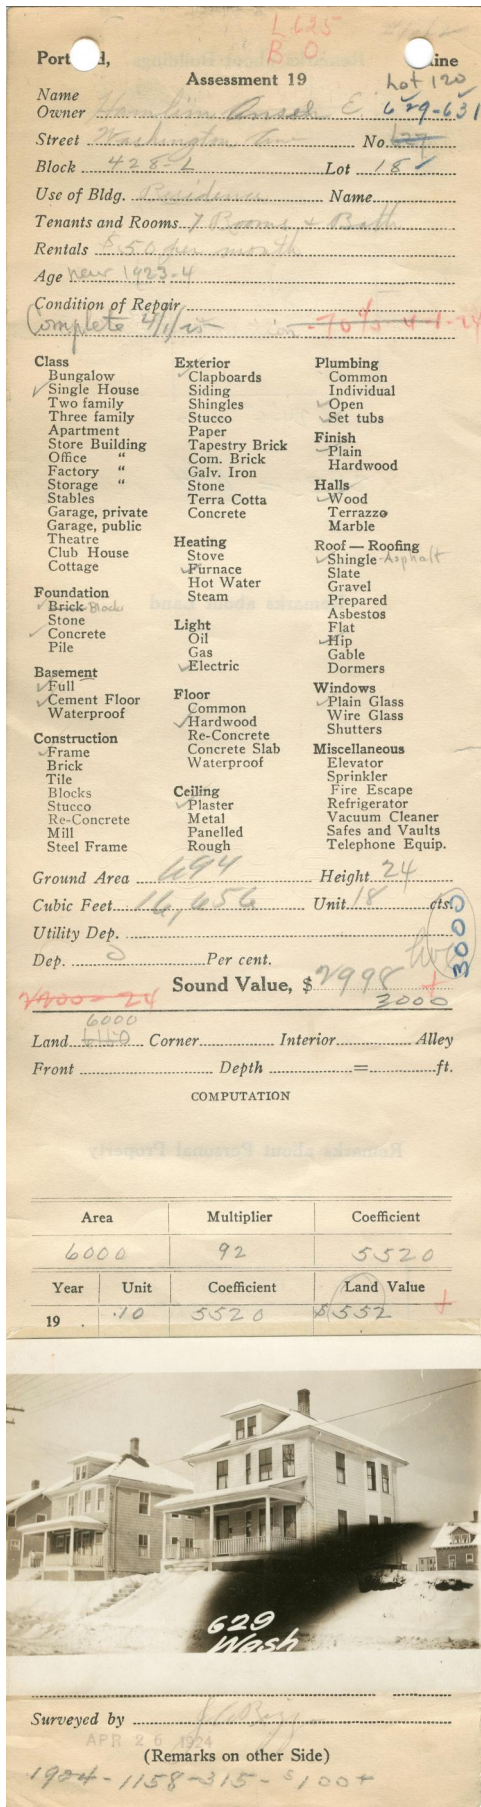 L 625
B O
Portland, Maine
Assessment 19
Lot 120
Name
Owner Hamlin Ansel E. 629-631
Street Washington Ave No. 627
Block 428-L Lot 18
Use of Bldg. Residence Name
Tenants and Rooms 7 Rooms & Bath
Rentals $50 per month
Age new 1923-4
Condition of Repair
Complete 4/1/25 -70% 4-1-24
Class
Bungalow
✓ Single House
Two family
Three family
Apartment
Store Building
Office "
Factory "
Storage "
Stables
Garage, private
Garage, public
Theatre
Club House
Cottage
Foundation
✓ Brick Blocks
Stone
✓ Concrete
Pile
Basement
✓ Full
✓ Cement Floor
Waterproof
Construction
✓ Frame
Brick
Tile
Blocks
Stucco
Re-Concrete
Mill
Steel Frame
Exterior
✓ Clapboards
Siding
Shingles
Stucco
Paper
Tapestry Brick
Com. Brick
Galv. Iron
Stone
Terra Cotta
Concrete
Heating
Stove
✓ Furnace
Hot Water
Steam
Light
Oil
Gas
✓ Electric
Floor
Common
✓ Hardwood
Re-Concrete
Concrete Slab
Waterproof
Ceiling
✓ Plaster
Metal
Panelled
Rough
Plumbing
Common
Individual
✓ Open
✓ Set tubs
Finish
✓ Plain
Hardwood
Halls
✓ Wood
Terrazzo
Marble
Roof — Roofing
✓ Shingle - Asphalt
Slate
Gravel
Prepared
Asbestos
Flat
✓ Hip
Gable
Dormers
Windows
✓ Plain Glass
Wire Glass
Shutters
Miscellaneous
Elevator
Sprinkler
Fire Escape
Refrigerator
Vacuum Cleaner
Safes and Vaults
Telephone Equip.
Ground Area 694 Height 24
Cubic Feet 16,656 Unit 18 cts.
Utility Dep.
3000
Dep. 0 Per cent.
Sound Value, $ 2998 +
2200 - 24 3000
6000
Land 6110 Corner Interior Alley
Front Depth = ft.
COMPUTATION
Area Multiplier Coefficient
6000 92 5520
Year Unit Coefficient Land Value
19 .10 5520 $552 +
629
Wash
Surveyed by
APR 26 1924
(Remarks on other Side)
1924-1158-315-$100+